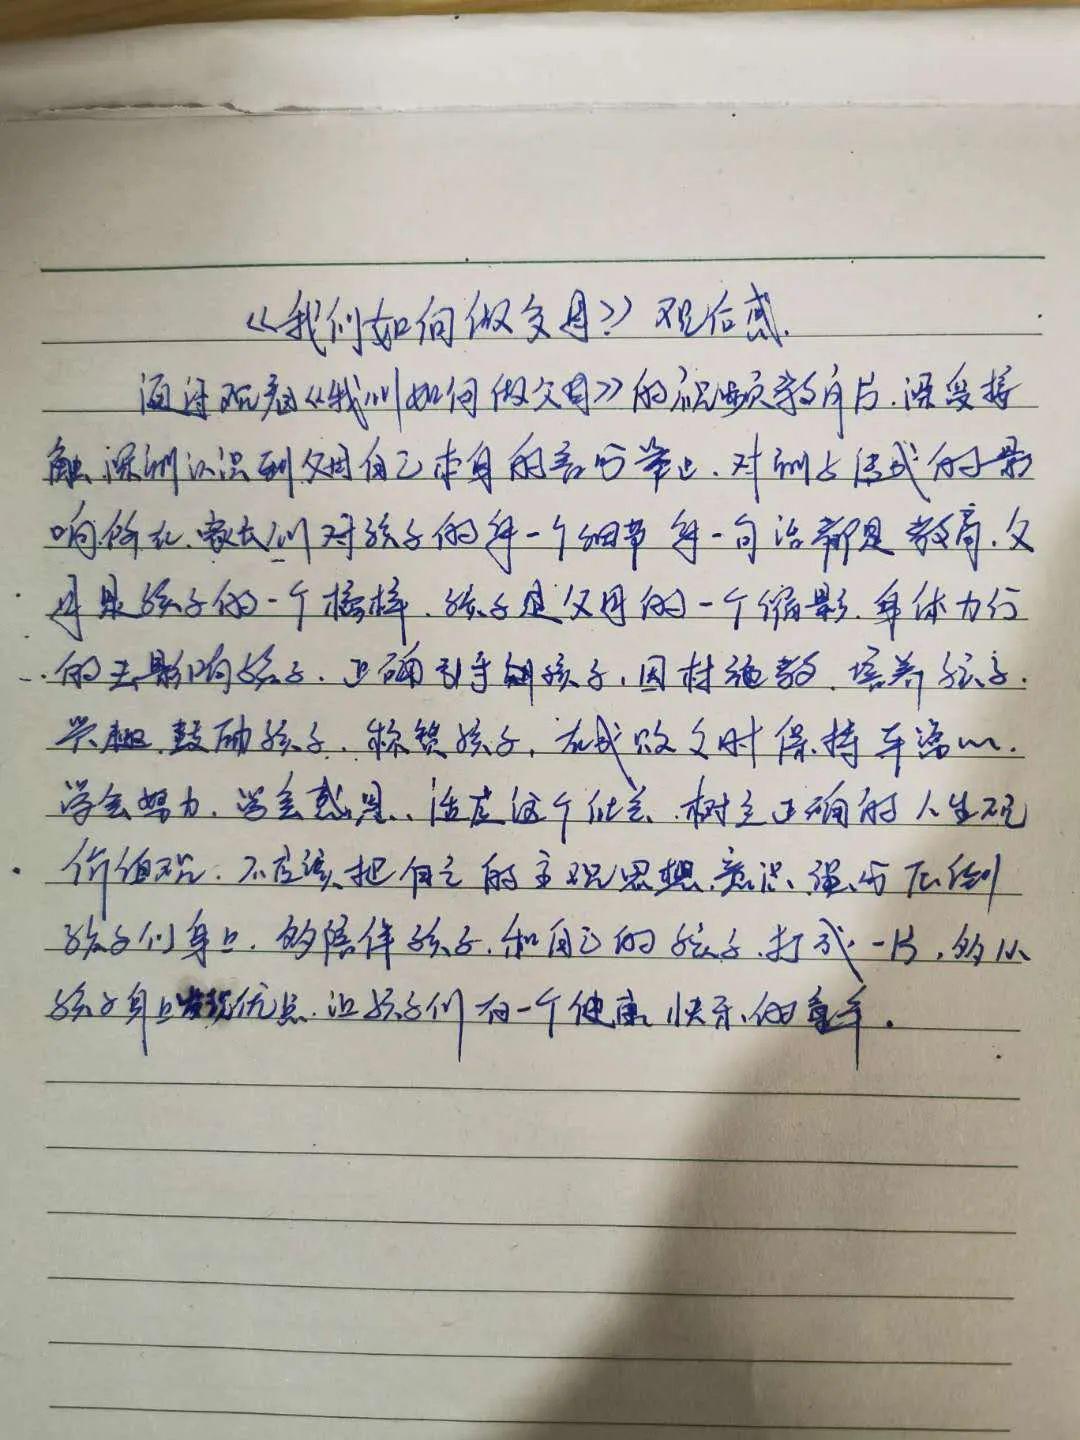 《我们如何做父母》观后感.
通过观看《我们如何做父母》的视频教育片.深受接
触.深刻认识到父母自己本身的言行举止.对
响.家长们对孩子的每一个细节每一句话都是教育.父
母是孩子的一个榜样.孩子是父母的一个缩影.身体力行
的去影响孩子.正确引导孩子,因材施教.培养孩子.
兴趣.鼓励孩子.称赞孩子,在成败之时保持平常心.
学会努力.学会感恩..适应这个社会.树立正确的人生观
价值观.不应该把自己的主观思想.意识.强行压给到
孩子们身上.多陪伴孩子.和自己的孩子.打成一片.多从
孩子身上发现优点.让孩子们有一个健康.快乐.的童年.